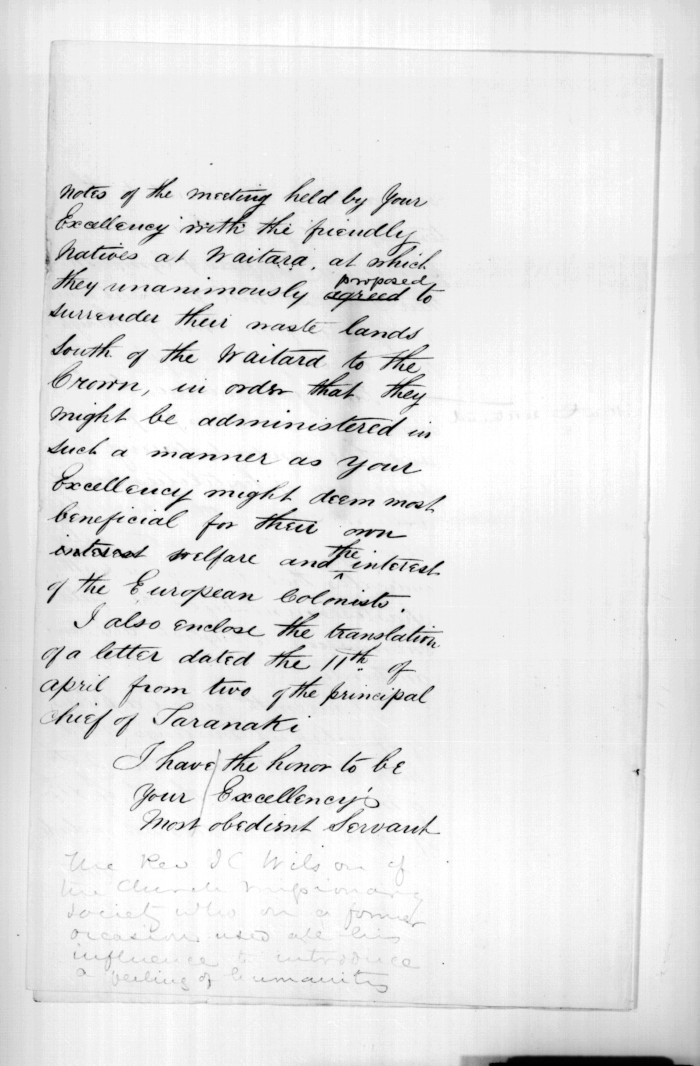 notes of the meeting held by Your
Excellency with the friendly
Natives at Waitara, at which
they unanimously agreed proposed to
surrender their waste lands
South of the Waitara to the
Crown, in order that they
might be administered in
such a manner as Your
Excellency might deem most
beneficial for their own
interest welfare and the interest
of the European Colonists.
I also enclose the translation
of a letter dated the 11th of
April from two of the principal
chief of Taranaki
I have the honor to be
Your Excellency's
Most obedient Servant
The Rev J C Wilson of
the Church Missionary
Society who on a former
occasion used all his
influence to introduce
a feeling of humanity